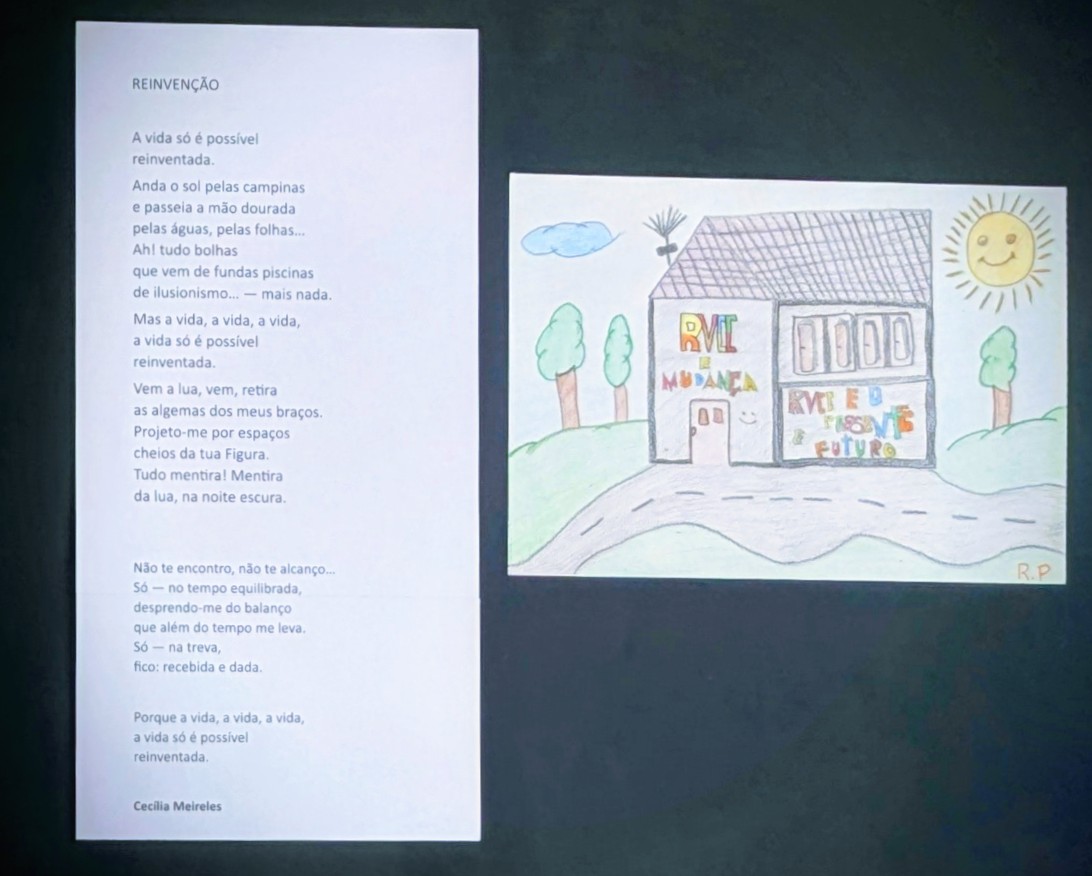 REINVENÇÃO
A vida só é possível
reinventada.
Anda o sol pelas campinas
e passeia a mão dourada
pelas águas, pelas folhas...
Ah! tudo bolhas
que vem de fundas piscinas
de ilusionismo... — mais nada.
Mas a vida, a vida, a vida,
a vida só é possível
reinventada.
Vem a lua, vem, retira
as algemas dos meus braços.
Projeto-me por espaços
cheios da tua Figura.
Tudo mentira! Mentira
da lua, na noite escura.
Não te encontro, não te alcanço...
Só — no tempo equilibrada,
desprendo-me do balanço
que além do tempo me leva.
Só — na treva,
fico: recebida e dada.
Porque a vida, a vida, a vida,
a vida só é possível
reinventada.
Cecília Meireles
É
MUDANÇA
E O
PRESENTE
E FUTURO
R.P